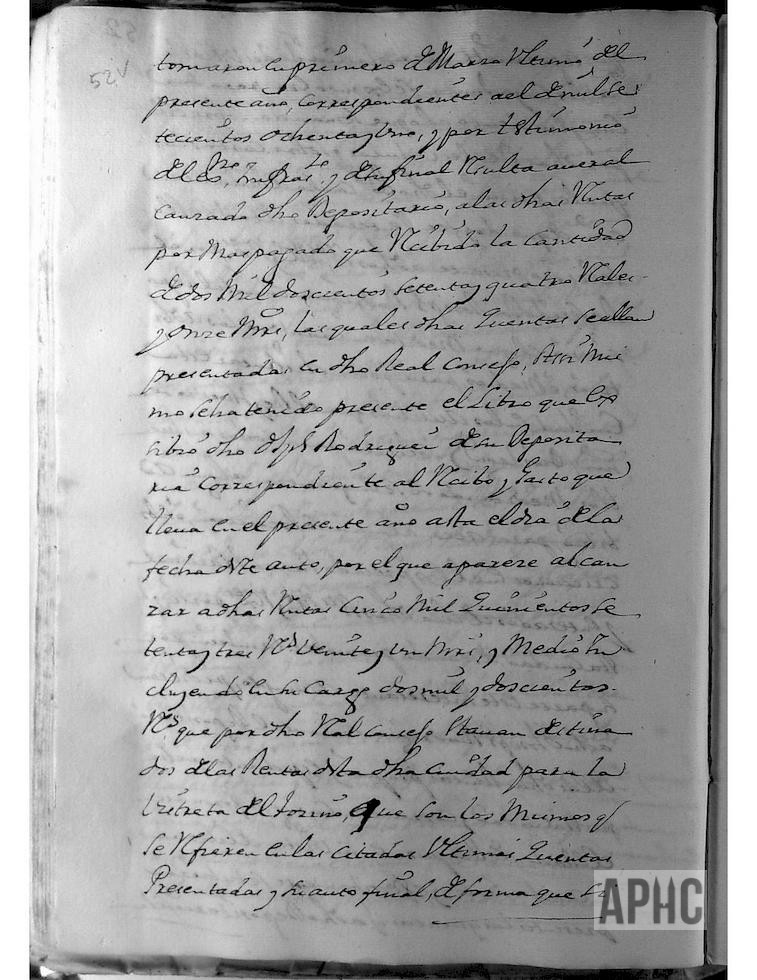 52v
tomaron en primero de Marzo Ultimo del
presente año, correspondientes a el de mil Se
tecientos ochenta y uno, y por testimonio
del es.no infras.to y de su final Resulta aver al
canzado dho Depositario, a las dhas Rentas
por Mas pagado que Recibido la Cantidad
de dos Mil doscientos Setenta y quatro Reales
y onze Mrs, las quales dhas Quentas se allan
presentadas en dho Real Consejo, Assi Mis
mo se ha tenido presente el Libro que Ex
sibio dho Rodriguez de su Deposita
ria Correspondiente al Recibo y Gasto que
lleva en el presente año asta el dia de la
fecha deste auto, por el que aparece alcan
zar a dhas Rentas Cinco Mil Quinientos Se
tenta y tres R.s veinte y un Mrs, y Medio In
cluyendo en su Cargo dos mil y doscientos
R.s que por dho Real Consejo Stavan destina
dos de las Rentas desta dha Ciudad para la
del que son los Mismos q
se Refieren en las citadas Ultimas Quentas
Presentadas y su auto final, de forma que
APHC